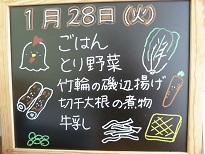 1月28日(火)
ごはん
とり野菜
竹輪の磯辺揚げ
切干大根の煮物
牛乳